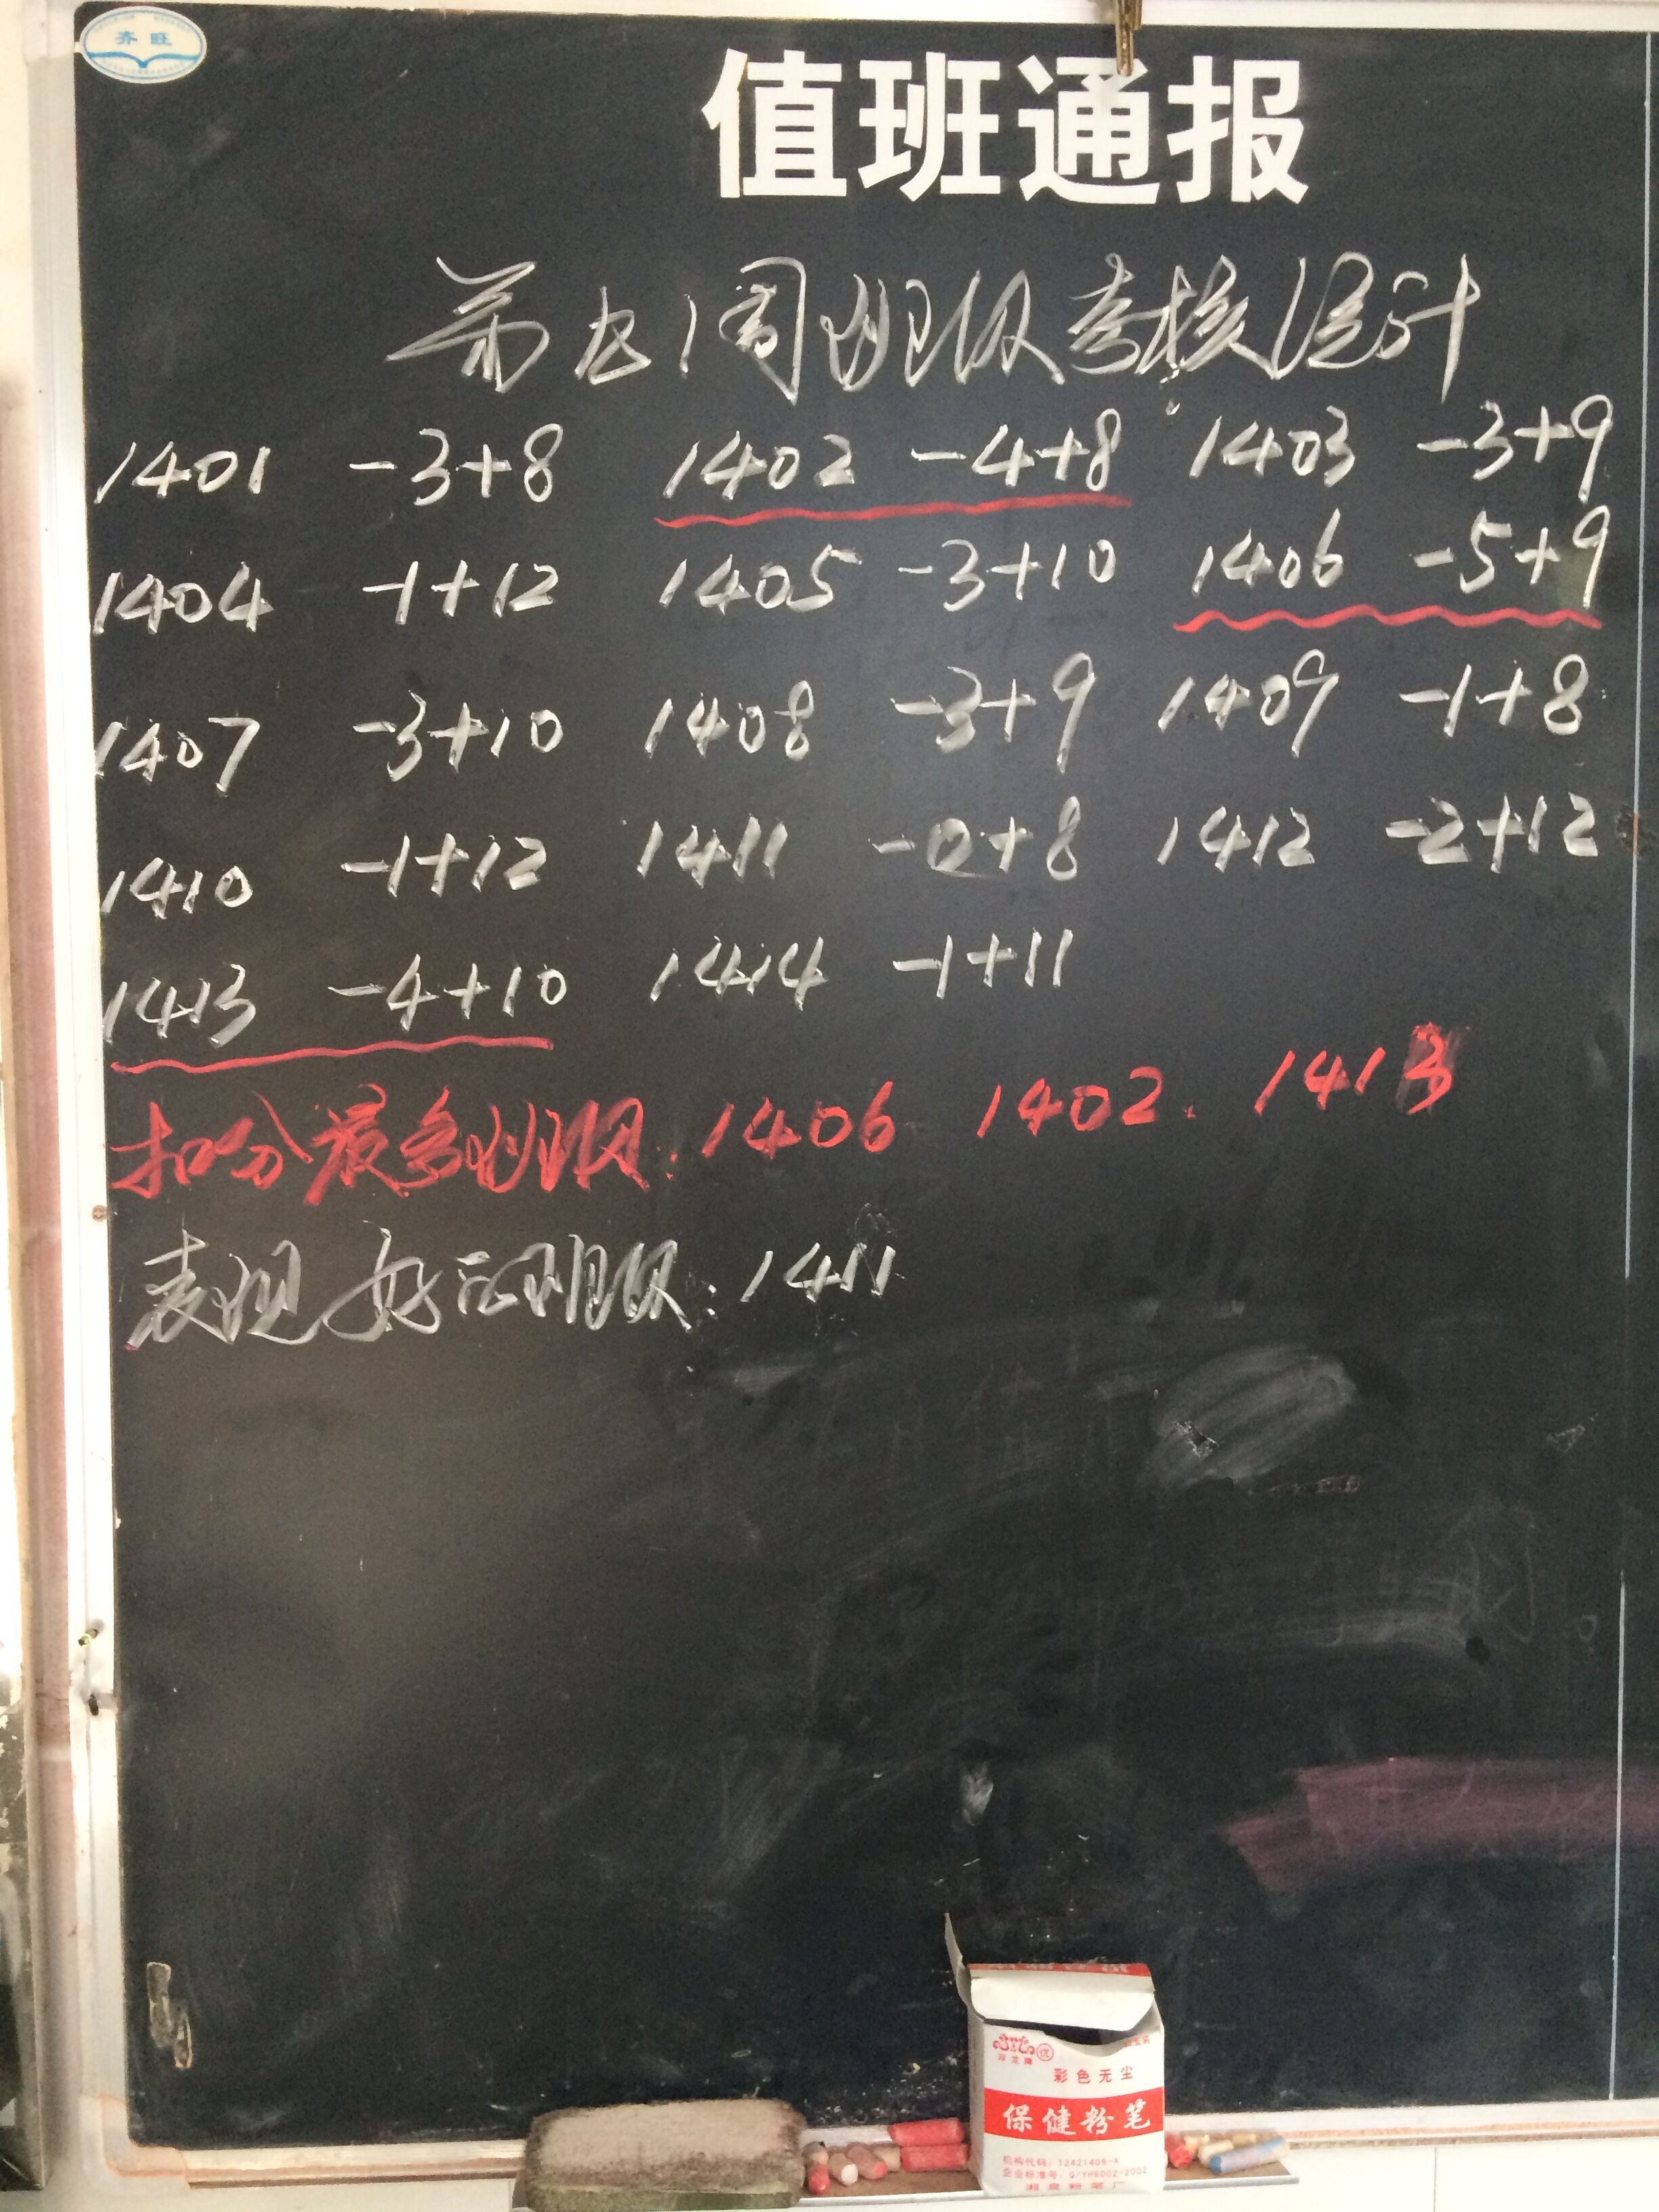 齐旺
值班通报
第七周班级考核统计
1401 -3+8 1402 -4+8 1403 -3+9
1404 -1+12 1405 -3+10 1406 -5+9
1407 -3+10 1408 -3+9 1409 -1+8
1410 -1+12 1411 -0+8 1412 -2+12
1413 -4+10 1414 -1+11
扣分最多的班级:1406 1402、1413
表现好的班级:1411
彩色无尘
保健粉笔
机构代码:12421406-A
企业标准号:Q/YHB002-2002
湘泉粉笔厂